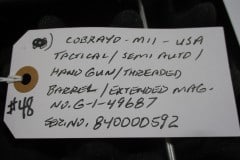 COBRAYD - M11 - USA
TACTICAL / SEMI AUTO /
HAND GUN / THREADED
BARREL / EXTENDED MAG.
NO. G-1-49687
SDR.NO. 840000592
#48